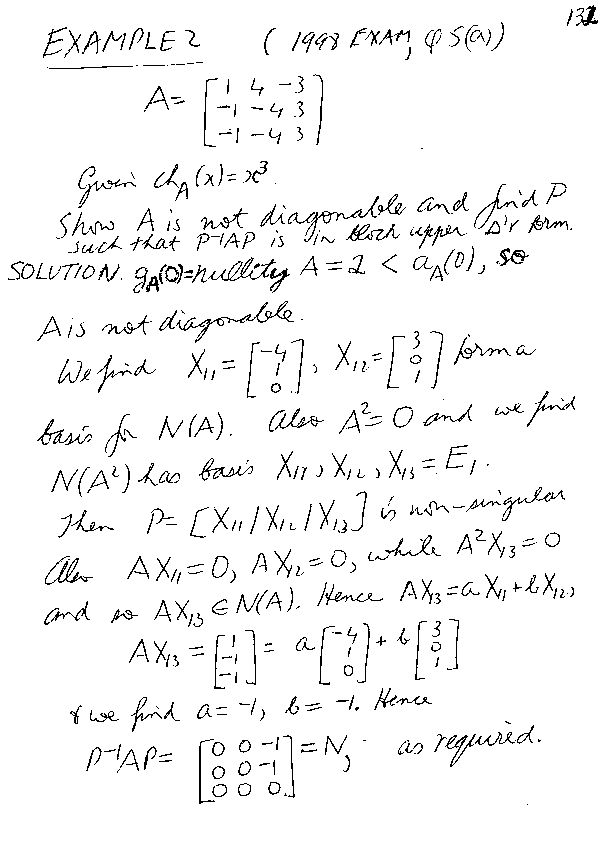 132
EXAMPLE 2 (1998 EXAM, Q 5(a))
A = [1 4 -3
-1 -4 3
-1 -4 3]
Given ch_A(x) = x³.
Show A is not diagonable and find P
such that P⁻¹AP is in block upper Δ'r form.
SOLUTION. g_A(0) = nullity A = 2 < a_A(0), so
A is not diagonable.
We find X₁₁ = [-4 1 0], X₁₂ = [3 0 1] form a
basis for N(A). Also A² = 0 and we find
N(A²) has basis X₁₁, X₁₂, X₁₃ = E₁.
Then P = [X₁₁ | X₁₂ | X₁₃] is non-singular
Also AX₁₁ = 0, AX₁₂ = 0, while A²X₁₃ = 0
and so AX₁₃ ∈ N(A). Hence AX₁₃ = aX₁₁ + bX₁₂,
AX₁₃ = [1 -1 -1] = a [-4 1 0] + b [3 0 1]
& we find a = -1, b = -1. Hence
P⁻¹AP = [0 0 -1
0 0 -1
0 0 0] = N, as required.